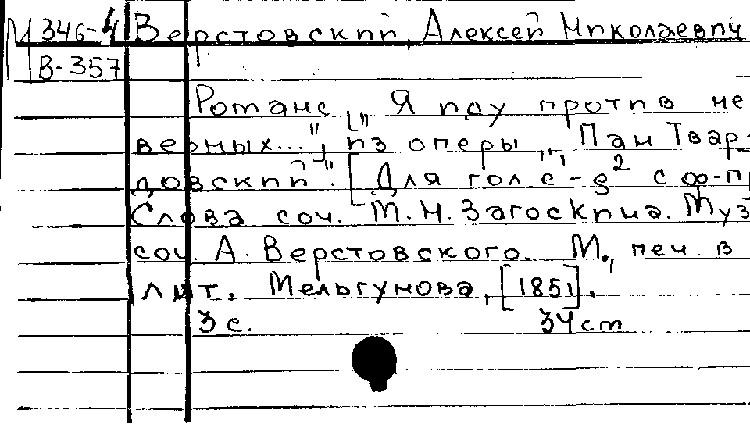 М 346-4 Верстовский, Алексей Николаевич
В-357
Романс „Я иду против не
верных...", из оперы „Пан Твар-
довский". [Для гол. c-g² с ф-п
Слова соч. М.Н. Загоскина. Муз
соч. А. Верстовского. М., печ. в
лит. Мельгунова, [1851].
3 с. 34 cm